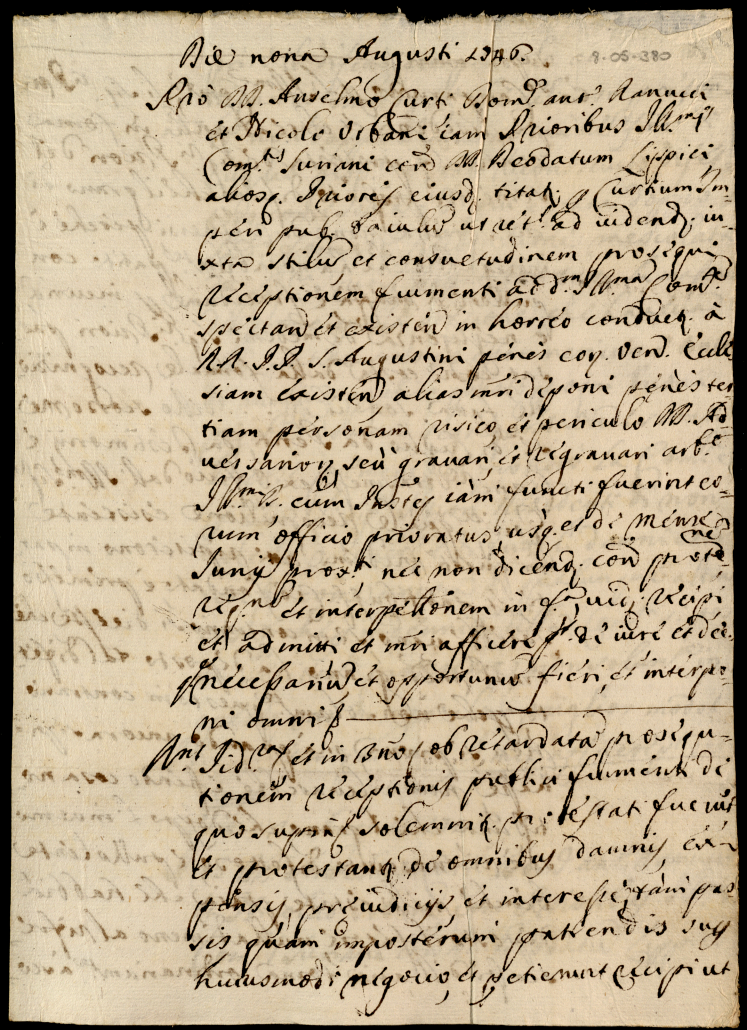 Die nona Augusti 1746.
8-05-380
Pro DD. Anselmo Curti Dom.º ant.º Ranucci
et Nicolo Urbani iam Prioribus Ill.mę
Com.tis Suriani con DD. Deodatum Lispici
aliosq. Priores eiusd. titat. p Curtium Im-
peri pub. baiulus ut ret. ad vidend. iu-
xta stilus et consuetudinem prosequi
receptionem frumenti ad d.m Ill.mam Com.tem
spectan et existen in horreo conducq. à
RR. P.P. S. Augustini penes eoq. Ven. Eccle
siam existen alias mri deponi penes ter
tiam personam risico et periculo DD. Ad
versarioq. seù gravari, et regravari arb.º
Ill.mi D. cum Instes iam functi fuerint eo-
rum officio prioratus usq. et de mense
Junij prox.i nec non dicend. con prote
ne
req.ne et interpellonem in f. vid. recipi
et admitti et mri afficere de iure et dec.
necessarium et opportunum fieri, et interpo-
ni omni
Ant. Iid. et in Bno ob retardata prosequ-
tionem receptionis publici frumenti de
quo supra solemnit. protestati fuerunt
et protestantq. de omnibus damnis, ex-
pensis, preiudicijs et interesse, tam pas-
sis quam imposterum patiendis sup
huiusmodi negocio, et petierunt recipi ut